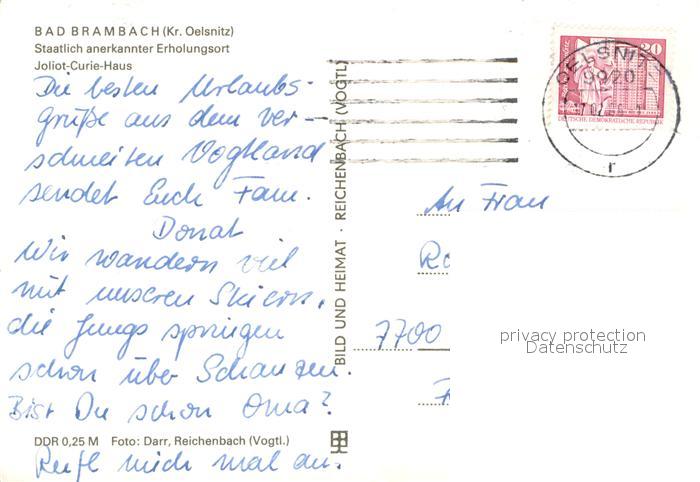 BAD BRAMBACH (Kr. Oelsnitz)
Staatlich anerkannter Erholungsort
Joliot-Curie-Haus
Die besten Urlaubs-
grüße aus dem ver-
schneiten Vogtland
sendet Euch Fam.
Donat
Wir wandern viel
mit unseren Skiern,
die Jungs springen
schon über Schanzen.
Bist Du schon Oma?
DDR 0,25 M Foto: Darr, Reichenbach (Vogtl.)
Ruf mich mal an.
BILD UND HEIMAT · REICHENBACH (VOGTL)
OELSNITZ
9920
r
20
DEUTSCHE DEMOKRATISCHE REPUBLIK
An Frau
7700
privacy protection
Datenschutz